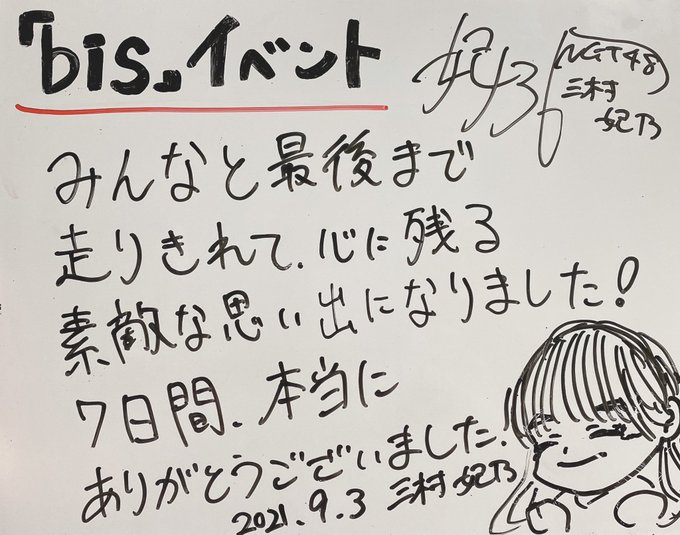 「bis」イベント
NGT48
三村
妃乃
みんなと最後まで
走りきれて、心に残る
素敵な思い出になりました！
7日間、本当に
ありがとうございました。
2021.9.3 三村妃乃